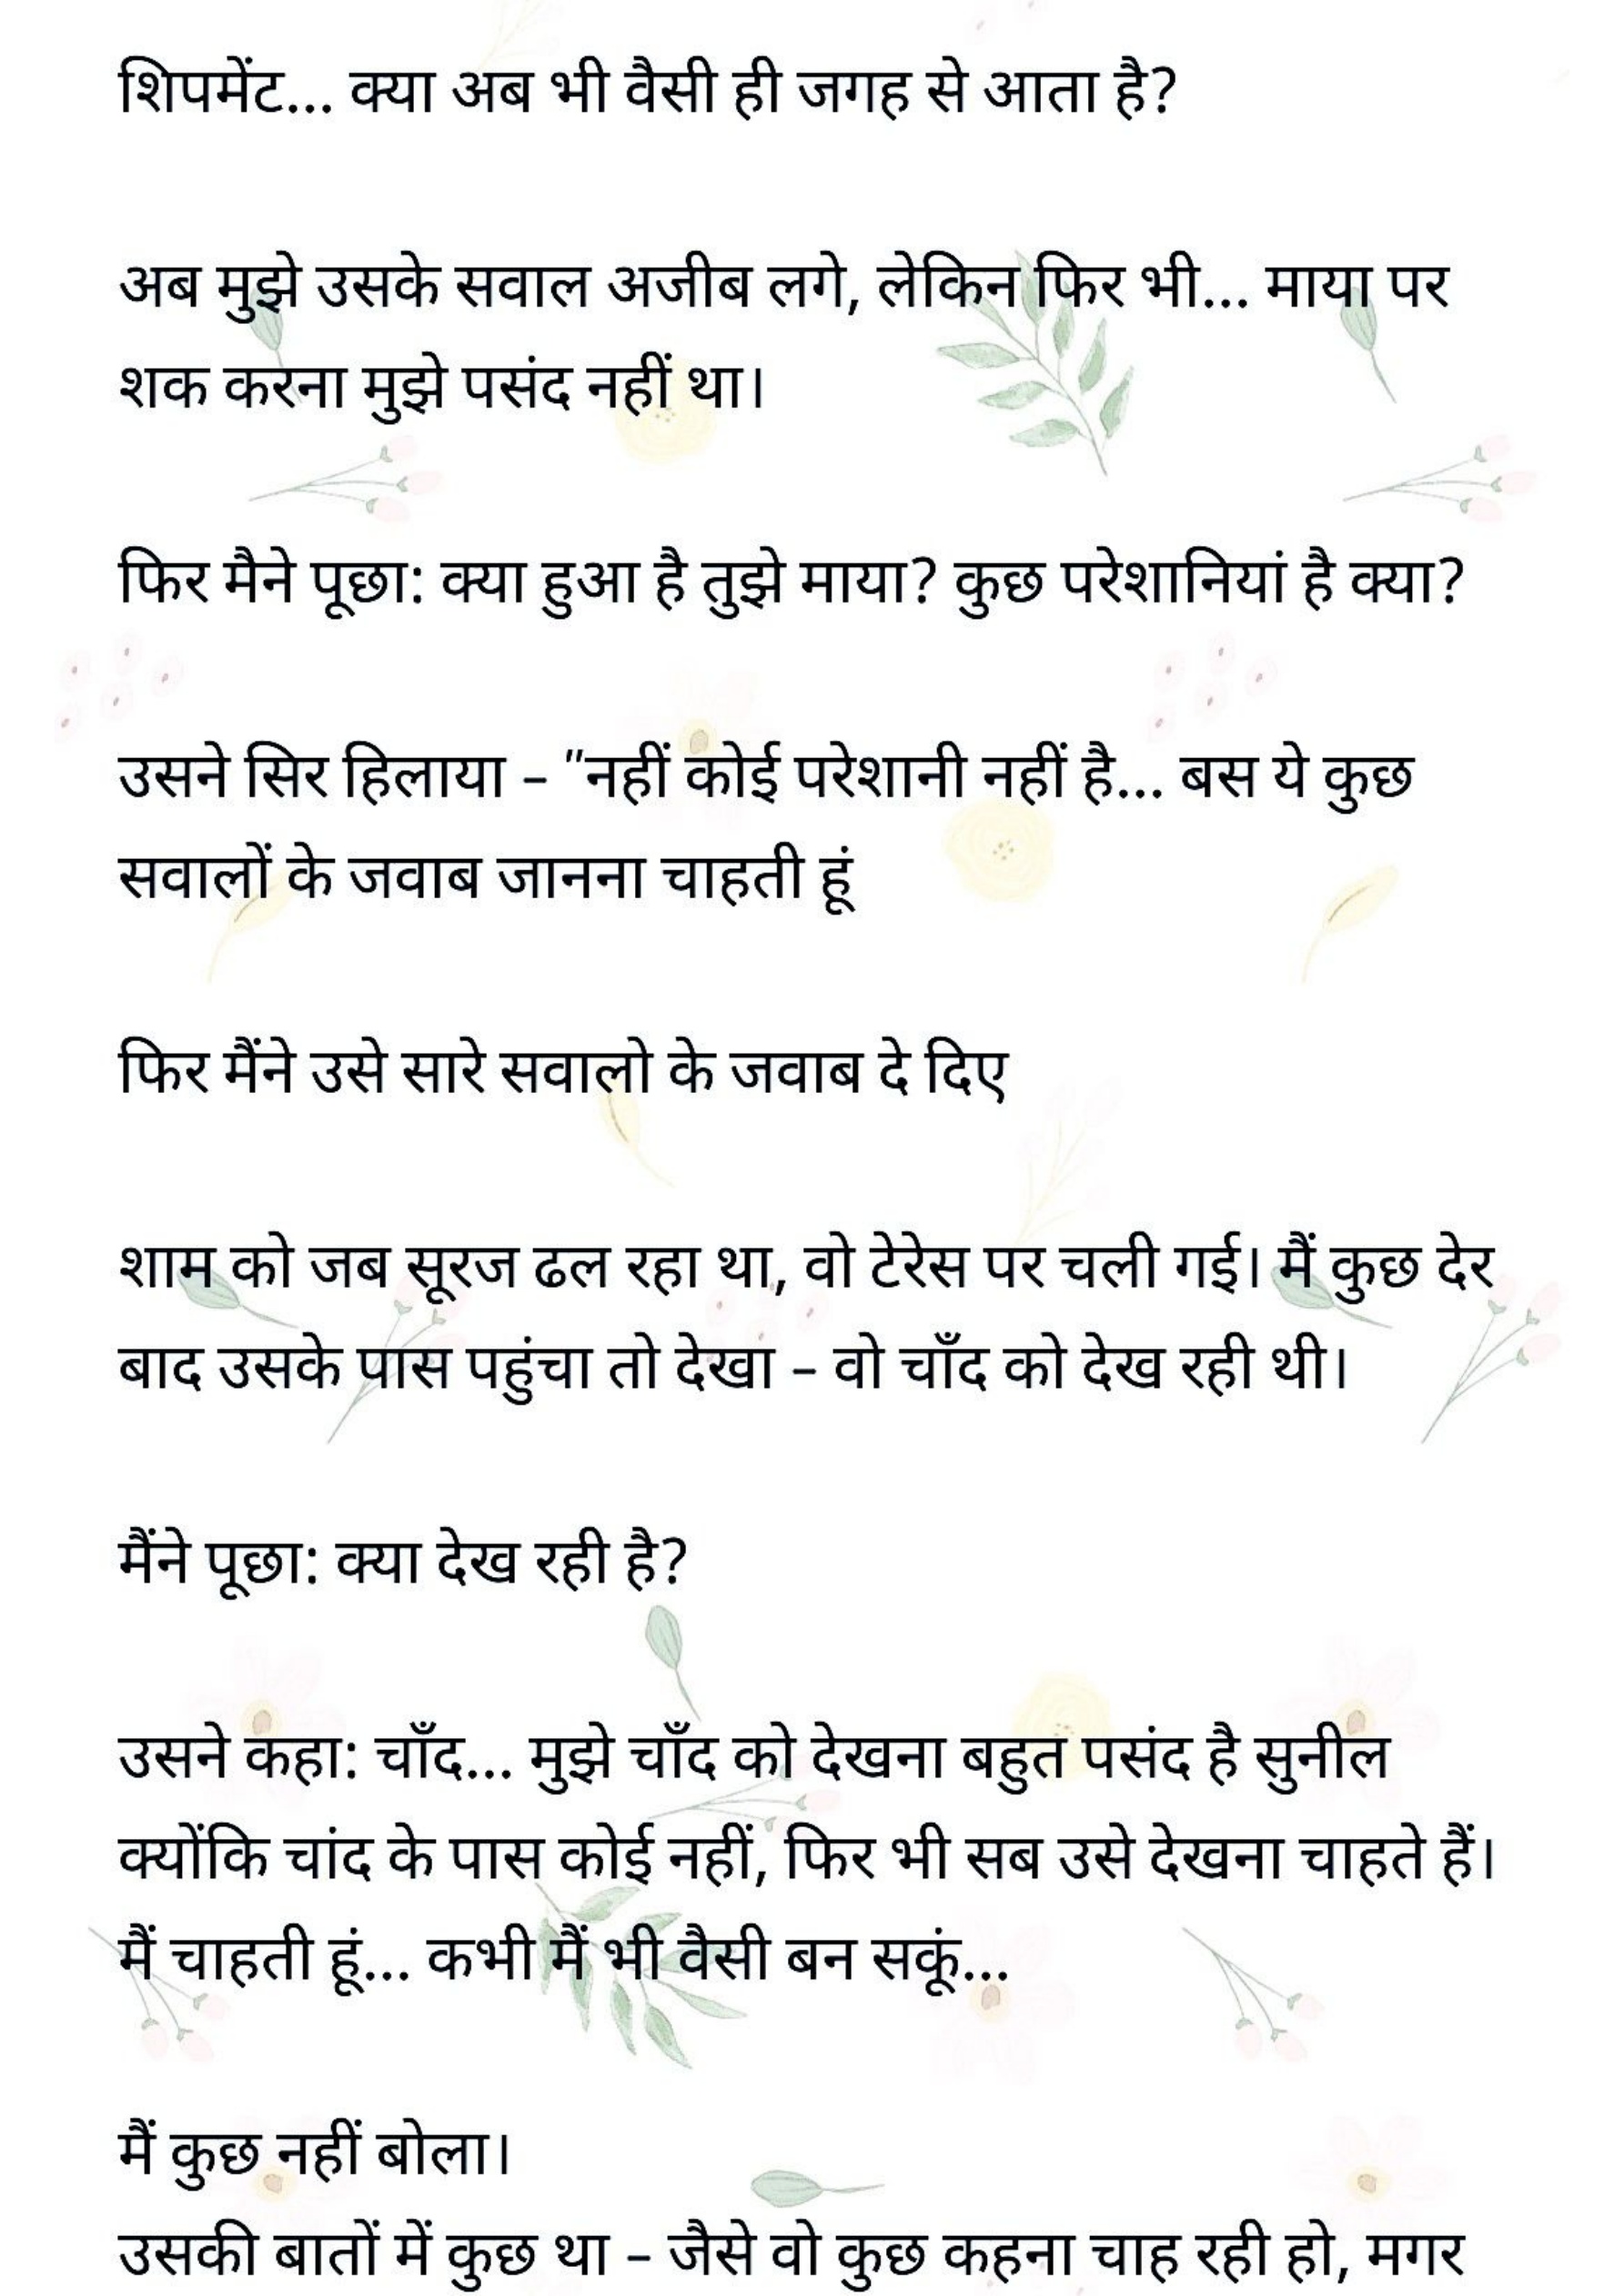 शिपमेंट... क्या अब भी वैसी ही जगह से आता है?
अब मुझे उसके सवाल अजीब लगे, लेकिन फिर भी... माया पर
शक करना मुझे पसंद नहीं था।
फिर मैने पूछा: क्या हुआ है तुझे माया? कुछ परेशानियां है क्या?
उसने सिर हिलाया – "नहीं कोई परेशानी नहीं है... बस ये कुछ
सवालों के जवाब जानना चाहती हूं
फिर मैंने उसे सारे सवालो के जवाब दे दिए
शाम को जब सूरज ढल रहा था, वो टेरेस पर चली गई। मैं कुछ देर
बाद उसके पास पहुंचा तो देखा – वो चाँद को देख रही थी।
मैंने पूछा: क्या देख रही है?
उसने कहा: चाँद... मुझे चाँद को देखना बहुत पसंद है सुनील
क्योंकि चांद के पास कोई नहीं, फिर भी सब उसे देखना चाहते हैं।
मैं चाहती हूं... कभी मैं भी वैसी बन सकूं...
मैं कुछ नहीं बोला।
उसकी बातों में कुछ था – जैसे वो कुछ कहना चाह रही हो, मगर